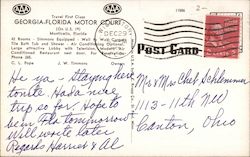 Travel First Class
GEORGIA-FLORIDA MOTOR COURT
(On U.S. 19)
Monticello, Florida
42 Rooms - Simmons Equipped - Wall to Wall Carpets
Tile Bath Tub and Shower - Air Conditioning Optional
Large attractive Lobby with Television
Restaurant next door. Air
Phone
C. L. Pope J. W. Timmons
AAA
AAA
DEC 29
POST CARD
He ya - Staying here
tonite Had a nice
trip so far. Hope to
be in Fla tomorrow
Will write later
Regards Harriet & Al
Mr & Mrs Chet Schlemmer
1113 - 11th NW
Canton, Ohio